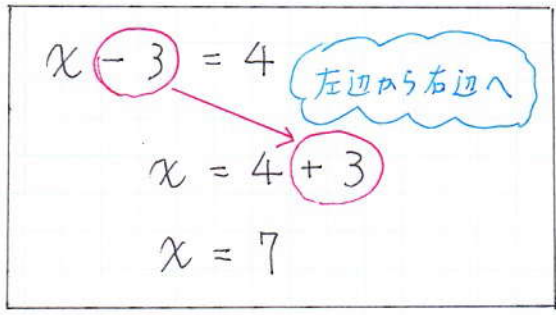 x - 3 = 4
左辺から右辺へ
x = 4 + 3
x = 7